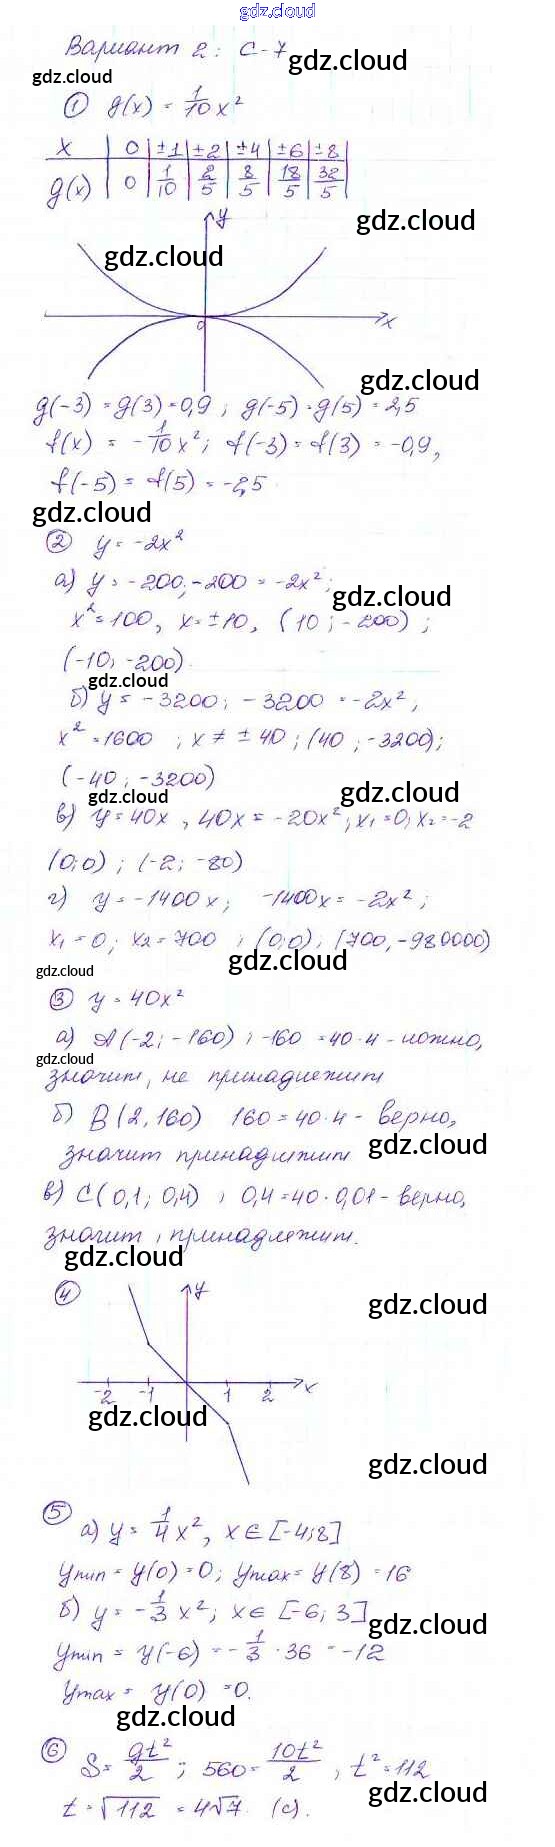 gdz.cloud
Вариант 2: С-7
gdz.cloud
gdz.cloud
① g(x) = 1/10 x²
x | 0 | ±1 | ±2 | ±4 | ±6 | ±8
g(x) | 0 | 1/10 | 2/5 | 8/5 | 18/5 | 32/5
gdz.cloud
y
gdz.cloud
0 x
gdz.cloud
g(-3) = g(3) = 0,9 ; g(-5) = g(5) = 2,5
f(x) = -1/10 x²; f(-3) = f(3) = -0,9,
f(-5) = f(5) = -2,5
gdz.cloud
② y = -2x²
а) y = -200; -200 = -2x²;
gdz.cloud
x² = 100, x = ±10, (10 ; -200) ;
(-10; -200)
gdz.cloud
б) y = -3200; -3200 = -2x²,
x² = 1600 ; x ≠ ±40 ; (40 ; -3200);
(-40 ; -3200)
gdz.cloud
gdz.cloud
в) y = 40x , 40x = -20x²; x₁ = 0; x₂ = -2
(0;0) ; (-2; -80)
г) y = -1400x; -1400x = -2x² ;
x₁ = 0; x₂ = 700 ; (0;0); (700, -980000)
gdz.cloud
gdz.cloud
③ y = 40x²
а) A(-2; -160) ; -160 = 40·4 - ложно,
gdz.cloud
значит, не принадлежит
б) B(2, 160) 160 = 40·4 - верно,
gdz.cloud
значит принадлежит
в) C(0,1; 0,4) ; 0,4 = 40·0,01 - верно,
значит, принадлежит.
gdz.cloud
④ y
gdz.cloud
-2 -1 1 2 x
gdz.cloud
gdz.cloud
⑤ а) y = 1/4 x², x ∈ [-4;8]
ymin = y(0) = 0; ymax = y(8) = 16
б) y = -1/3 x²; x ∈ [-6; 3]
gdz.cloud
ymin = y(-6) = -1/3 · 36 = -12
ymax = y(0) = 0.
gdz.cloud
⑥ S = gt²/2 ; 560 = 10t²/2 , t² = 112
gdz.cloud
t = √112 = 4√7 (с).